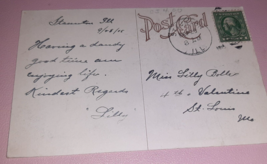 Staunton Ill
Having a dandy
good time and
enjoying life.
Kindest Regards
"Lilly"
Post Card
ILL
Miss Lilly
Valentine
St. Louis
Mo